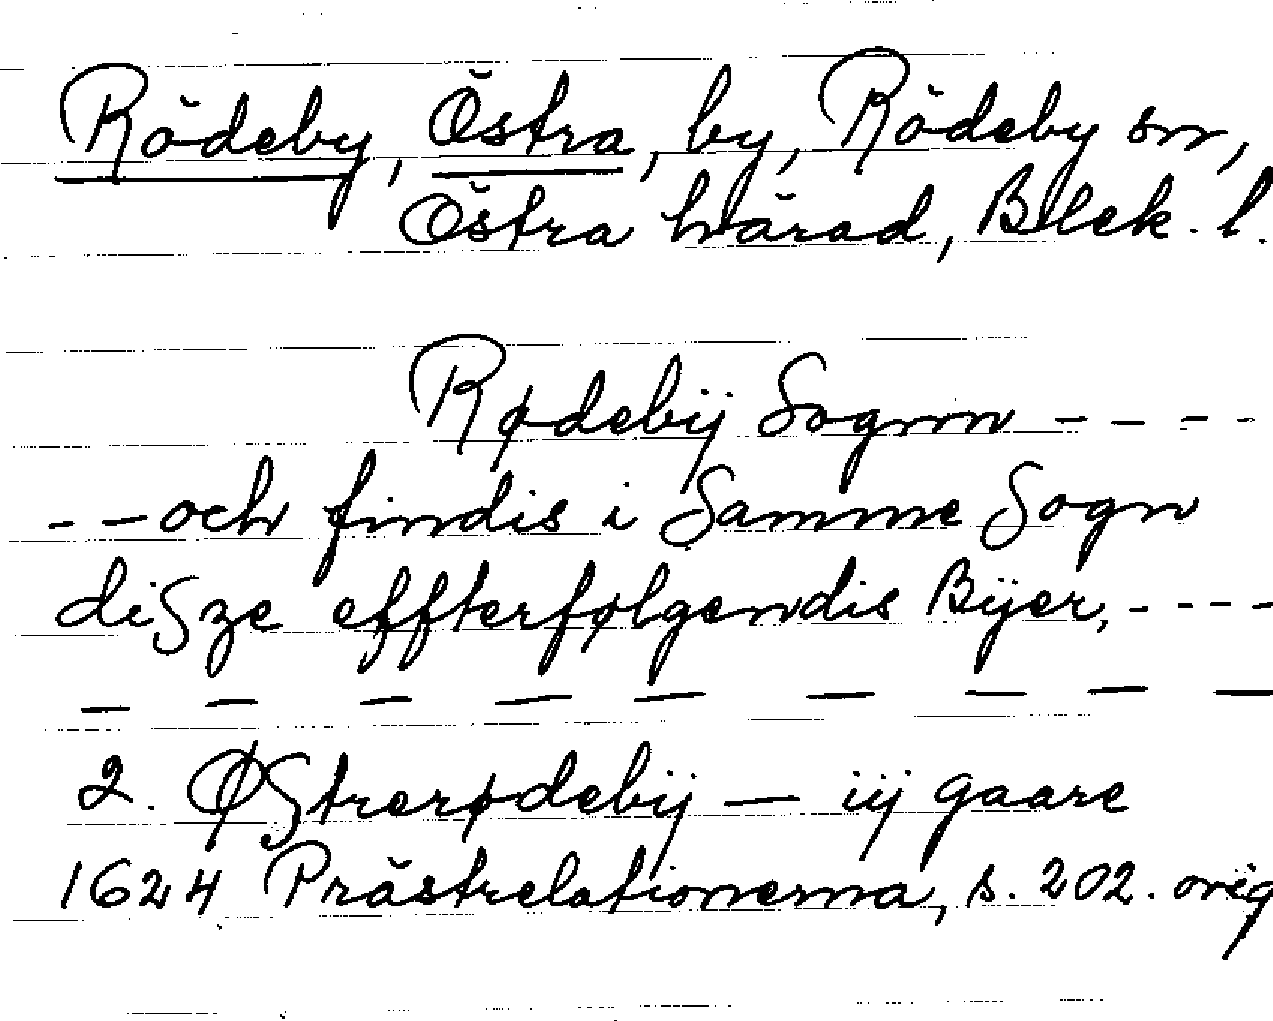 Rödeby, Östra, by, Rödeby sn,
Östra härad, Blek. l.
Rødebij Sognn - - - -
- - och findis i Samme Sogn
diszze effterfølgendis Bijer, - - - -
— — — — — — — — —
2. Østrerødebij — iij gaare
1624 Prästrelationerna, s. 202. orig